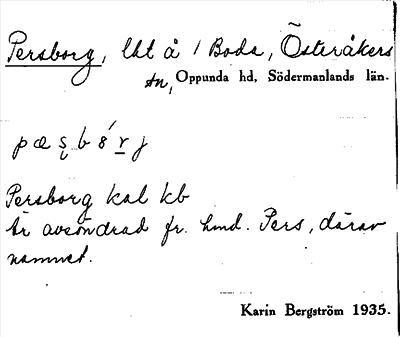 Persborg, lht å 1 Boda, Österåkers
sn, Oppunda hd, Södermanlands län.
Persborg kal kb
är avsöndrad fr. hmd. Pers, därav
namnet.
Karin Bergström 1935.